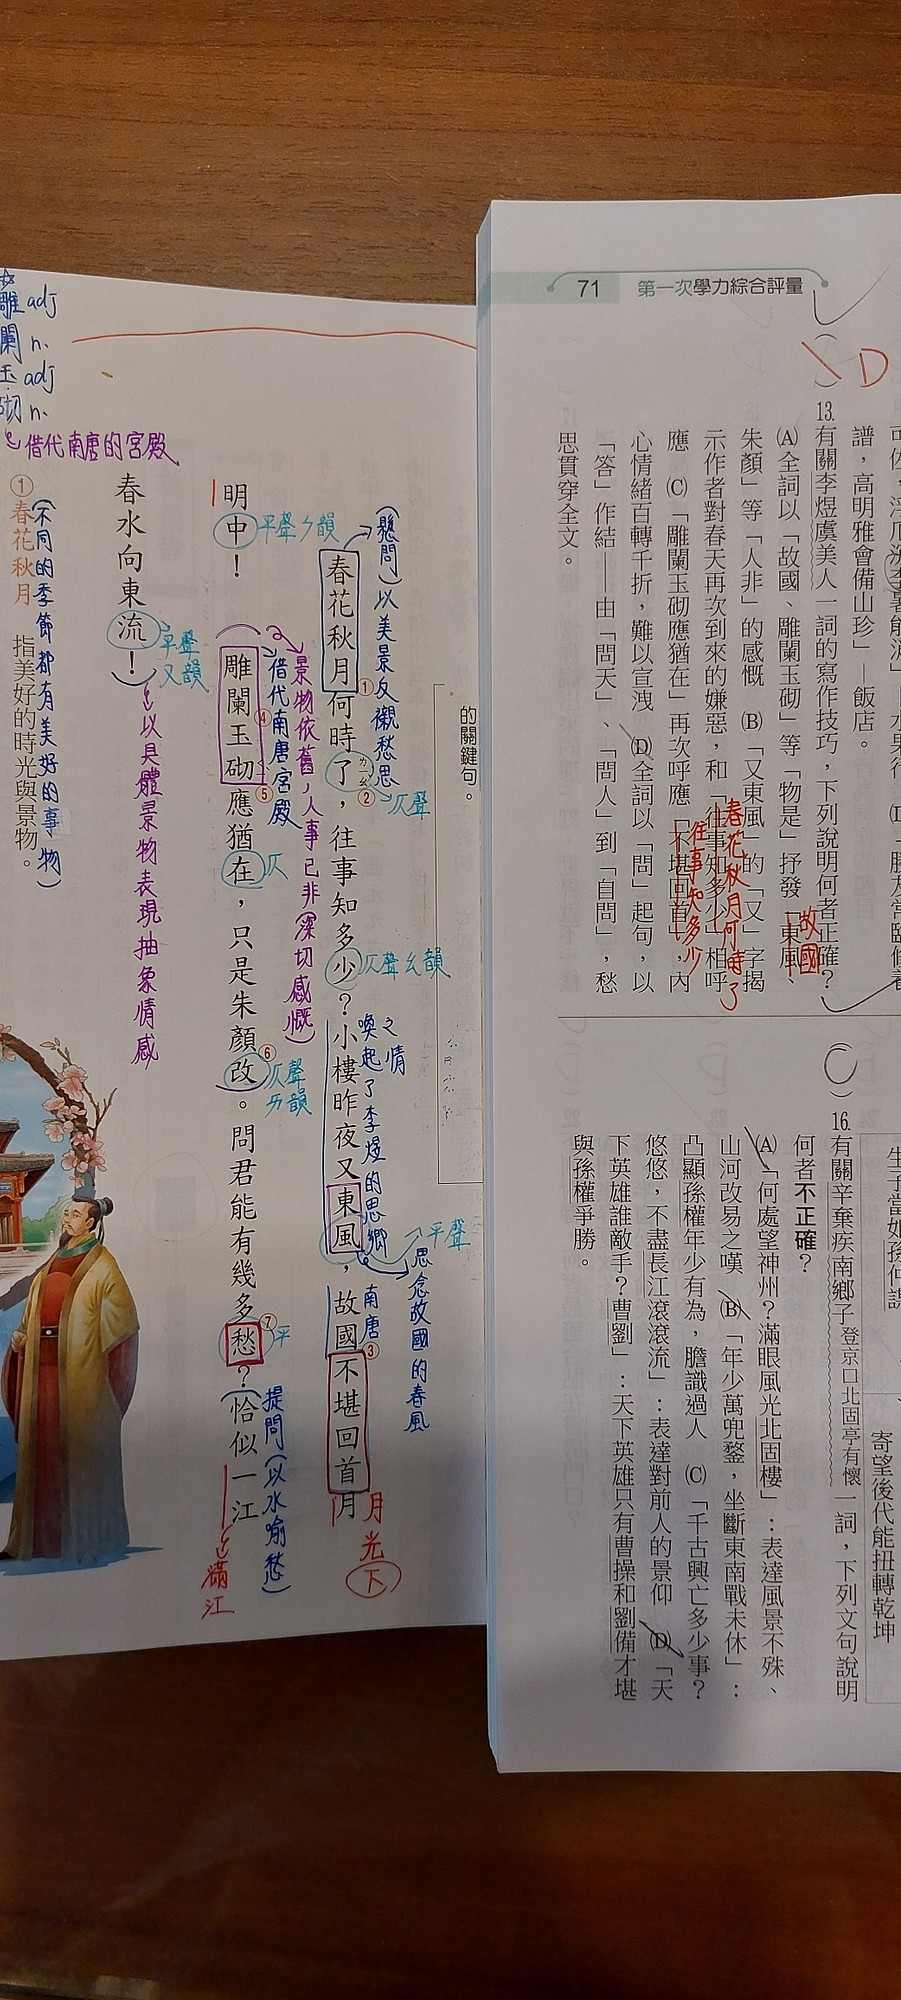 71 第一次學力綜合評量
D
譜,高明雅會備山珍」—飯店。
13.有關李煜虞美人一詞的寫作技巧,下列說明何者正確?
(A)全詞以「故國、雕闌玉砌」等「物是」抒發「東風、
故國
朱顏」等「人非」的感慨 (B)「又東風」的「又」字揭
示作者對春天再次到來的嫌惡,和「往事知多少」相呼
春花秋月何時了
應 (C)「雕闌玉砌應猶在」再次呼應「不堪回首」,內
往事知多少
心情緒百轉千折,難以宣洩 (D)全詞以「問」起句,以
「答」作結——由「問天」、「問人」到「自問」,愁
思貫穿全文。
寄望後代能扭轉乾坤
16.有關辛棄疾南鄉子登京口北固亭有懷一詞,下列文句說明
何者不正確?
(A)「何處望神州?滿眼風光北固樓」:表達風景不殊、
山河改易之嘆 (B)「年少萬兜鍪,坐斷東南戰未休」:
凸顯孫權年少有為,膽識過人 (C)「千古興亡多少事?
悠悠,不盡長江滾滾流」:表達對前人的景仰 (D)「天
下英雄誰敵手?曹劉」:天下英雄只有曹操和劉備才堪
與孫權爭勝。
的關鍵句。
思念故國的春風
平聲
(懸問)以美景反襯愁思
仄聲
仄聲ㄠ韻
之情
喚起了李煜的思鄉
南唐
春花秋月①何時了②,往事知多少?小樓昨夜又東風,故國③不堪回首月
ㄌㄧㄠ
月光下
景物依舊,人事已非(深切感慨)
借代南唐宮殿
仄
仄聲
ㄞ韻
平
提問(以水喻愁)
明中!
平聲ㄥ韻
雕闌④玉砌⑤應猶在,只是朱顏改⑥。問君能有幾多愁⑦?恰似一江
滿江
春水向東流!
平聲
ㄡ韻
以具體景物表現抽象情感
雕 adj
闌 n.
玉 adj
砌 n.
借代南唐的宮殿
(不同的季節都有美好的事物)
①春花秋月 指美好的時光與景物。